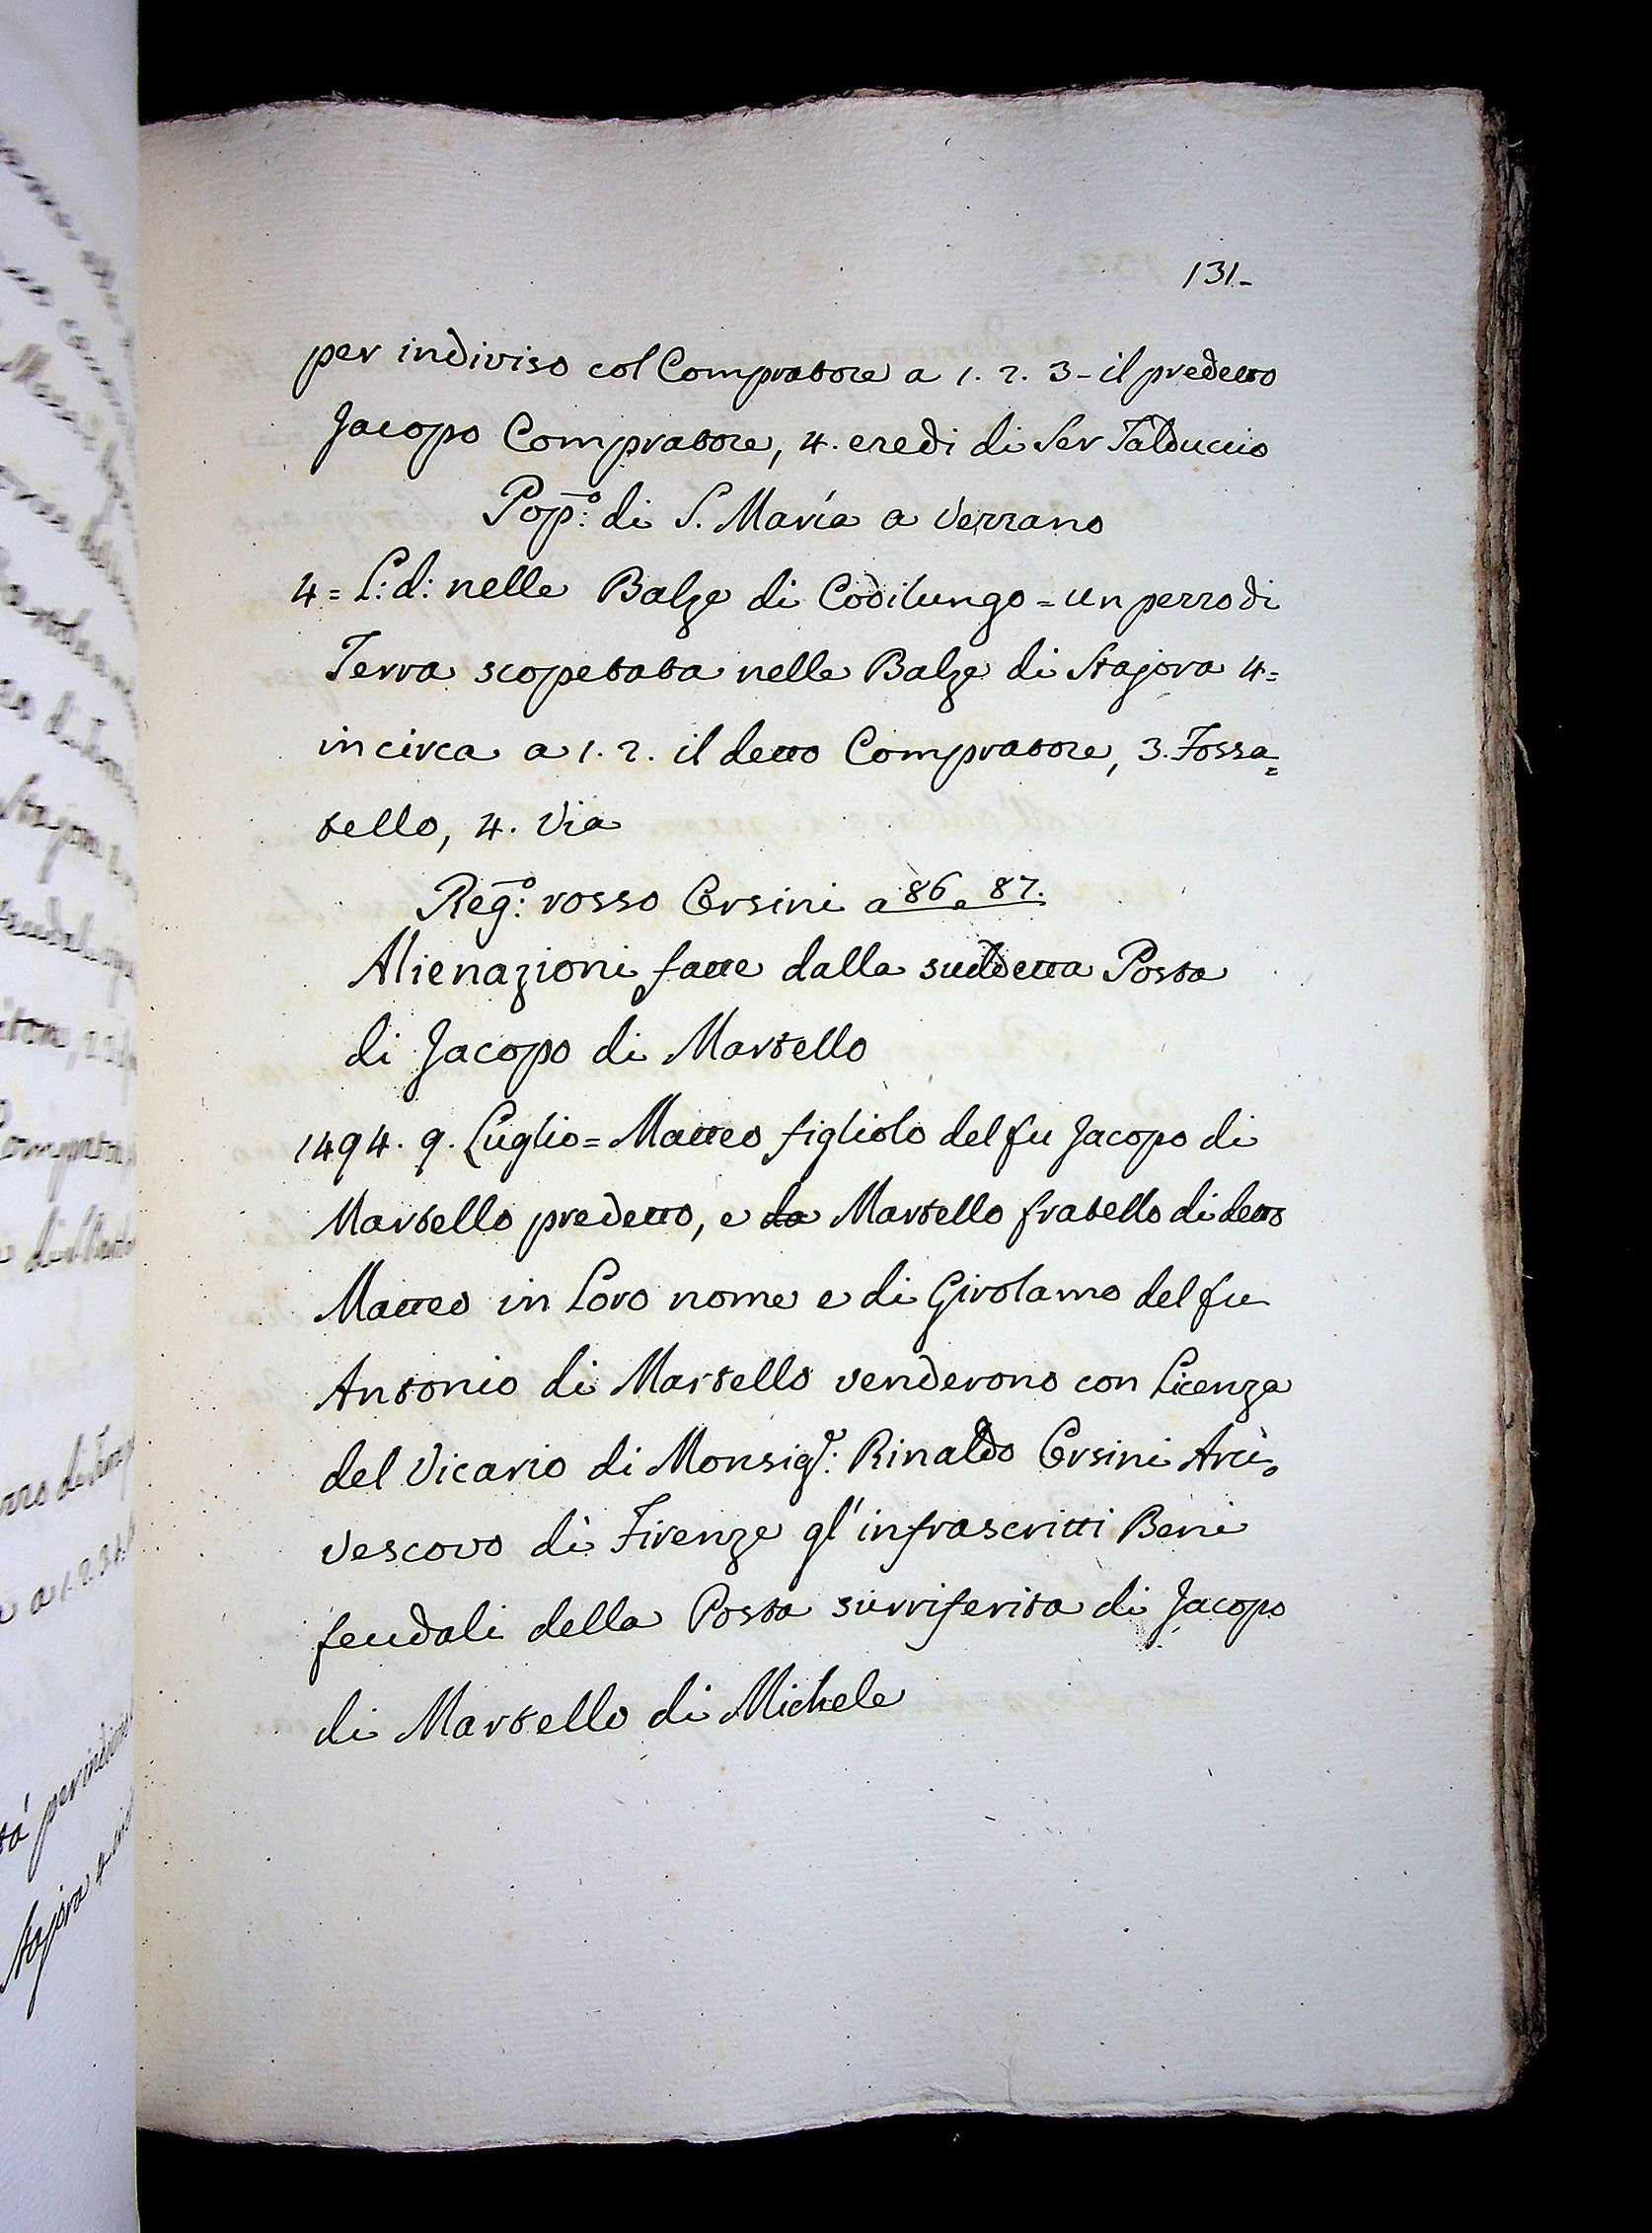 131.
per indiviso col Compratore a 1. 2. 3 - il predetto
Jacopo Compratore, 4. eredi di Ser Talduccio
Pop:º di S. Maria a Verzano
4 = L: d: nelle Balze di Codilungo = un pezzo di
Terra scopetata nelle Balze di Stajora 4 =
in circa a 1. 2. il detto Compratore, 3. Fossa=
tello, 4. Via
Reg:º rosso Orsini a 86. e 87.
Alienazioni fatte dalla suddetta Posta
di Jacopo di Martello
1494. 9. Luglio = Matteo figliolo del fu Jacopo di
Martello predetto, e da Martello fratello di detto
Matteo in Loro nome e di Girolamo del fu
Antonio di Martello venderono con Licenza
del Vicario di Monsig:r Rinaldo Orsini Arci=
vescovo di Firenze gl'infrascritti Beni
feudali della Posta surriferita di Jacopo
di Martello di Michele